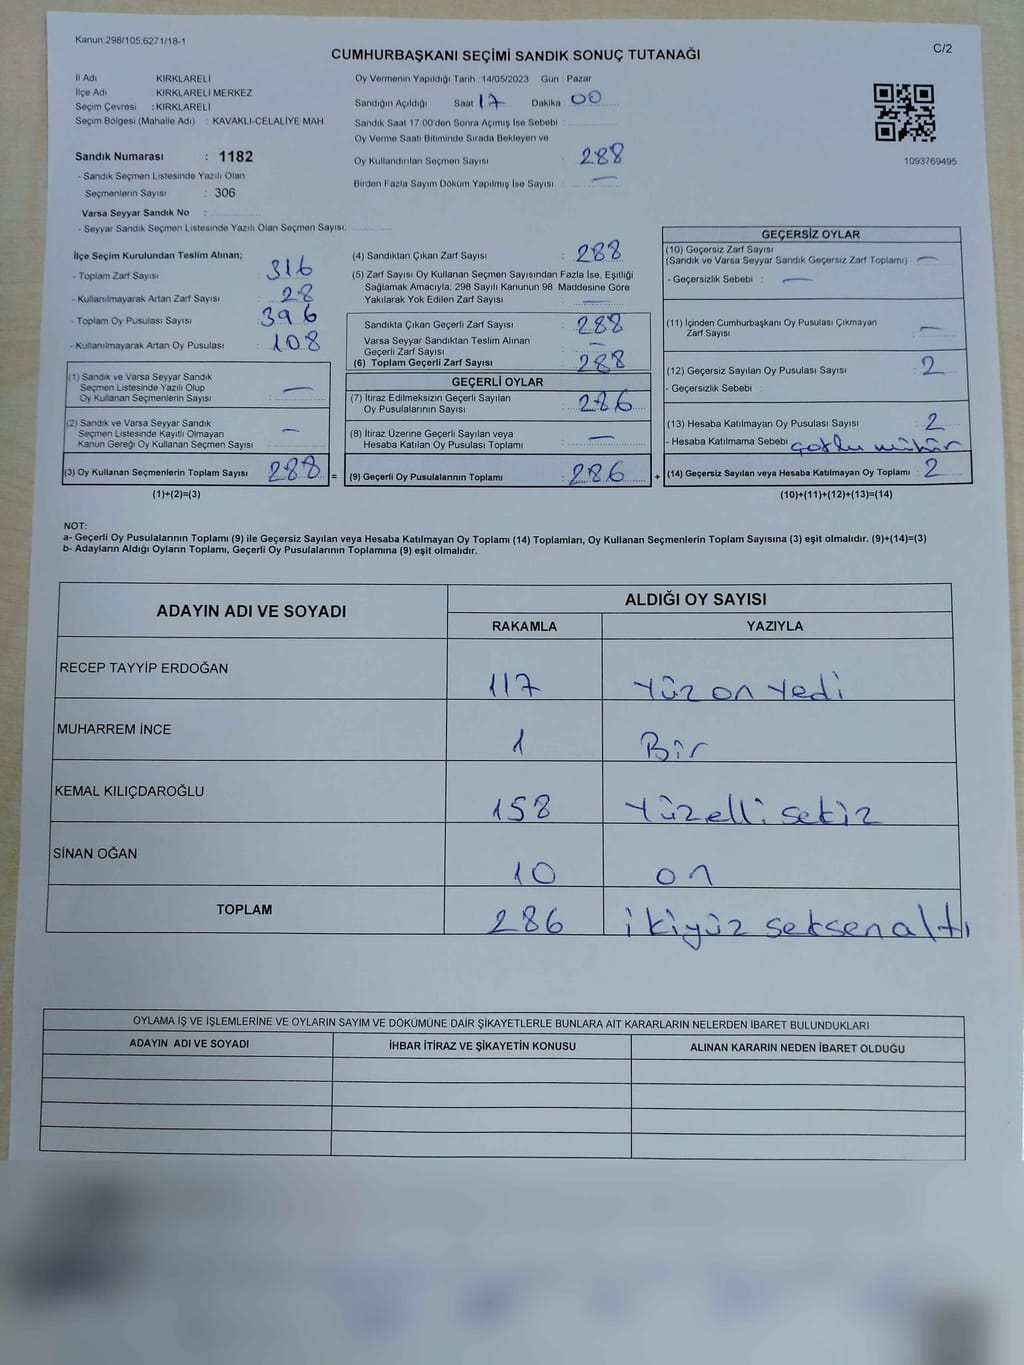 Kanun,298/105,6271/18-1
C/2
CUMHURBAŞKANI SEÇİMİ SANDIK SONUÇ TUTANAĞI
İl Adı : KIRKLARELİ
İlçe Adı : KIRKLARELİ MERKEZ
Seçim Çevresi : KIRKLARELİ
Seçim Bölgesi (Mahalle Adı) : KAVAKLI-CELALİYE MAH.
Sandık Numarası : 1182
- Sandık Seçmen Listesinde Yazılı Olan
Seçmenlerin Sayısı : 306
Varsa Seyyar Sandık No :
- Seyyar Sandık Seçmen Listesinde Yazılı Olan Seçmen Sayısı:
Oy Vermenin Yapıldığı Tarih : 14/05/2023 Gün : Pazar
Sandığın Açıldığı Saat 17 Dakika 00
Sandık Saat 17:00'den Sonra Açımış İse Sebebi :
Oy Verme Saati Bitiminde Sırada Bekleyen ve
Oy Kullandırılan Seçmen Sayısı : 288
Birden Fazla Sayım Döküm Yapılmış İse Sayısı : —
1093769495
İlçe Seçim Kurulundan Teslim Alınan;
- Toplam Zarf Sayısı : 316
- Kullanılmayarak Artan Zarf Sayısı : 28
- Toplam Oy Pusulası Sayısı : 396
- Kullanılmayarak Artan Oy Pusulası : 108
(1) Sandık ve Varsa Seyyar Sandık
Seçmen Listesinde Yazılı Olup
Oy Kullanan Seçmenlerin Sayısı : —
(2) Sandık ve Varsa Seyyar Sandık
Seçmen Listesinde Kayıtlı Olmayan
Kanun Gereği Oy Kullanan Seçmen Sayısı : —
(3) Oy Kullanan Seçmenlerin Toplam Sayısı 288 =
(1)+(2)=(3)
(4) Sandıktan Çıkan Zarf Sayısı : 288
(5) Zarf Sayısı Oy Kullanan Seçmen Sayısından Fazla İse, Eşitliği
Sağlamak Amacıyla, 298 Sayılı Kanunun 98. Maddesine Göre
Yakılarak Yok Edilen Zarf Sayısı : —
Sandıkta Çıkan Geçerli Zarf Sayısı : 288
Varsa Seyyar Sandıktan Teslim Alınan
Geçerli Zarf Sayısı : —
(6) Toplam Geçerli Zarf Sayısı : 288
GEÇERLİ OYLAR
(7) İtiraz Edilmeksizin Geçerli Sayılan
Oy Pusulalarının Sayısı : 286
(8) İtiraz Üzerine Geçerli Sayılan veya
Hesaba Katılan Oy Pusulası Toplamı : —
(9) Geçerli Oy Pusulalarının Toplamı : 286 +
GEÇERSİZ OYLAR
(10) Geçersiz Zarf Sayısı
(Sandık ve Varsa Seyyar Sandık Geçersiz Zarf Toplamı) : —
- Geçersizlik Sebebi : —
(11) İçinden Cumhurbaşkanı Oy Pusulası Çıkmayan
Zarf Sayısı : —
(12) Geçersiz Sayılan Oy Pusulası Sayısı : 2
- Geçersizlik Sebebi :
(13) Hesaba Katılmayan Oy Pusulası Sayısı : 2
- Hesaba Katılmama Sebebi mühür
(14) Geçersiz Sayılan veya Hesaba Katılmayan Oy Toplamı : 2
(10)+(11)+(12)+(13)=(14)
NOT:
a- Geçerli Oy Pusulalarının Toplamı (9) ile Geçersiz Sayılan veya Hesaba Katılmayan Oy Toplamı (14) Toplamları, Oy Kullanan Seçmenlerin Toplam Sayısına (3) eşit olmalıdır. (9)+(14)=(3)
b- Adayların Aldığı Oyların Toplamı, Geçerli Oy Pusulalarının Toplamına (9) eşit olmalıdır.
ADAYIN ADI VE SOYADI ALDIĞI OY SAYISI
RAKAMLA YAZIYLA
RECEP TAYYİP ERDOĞAN 117 Yüz on Yedi
MUHARREM İNCE 1 Bir
KEMAL KILIÇDAROĞLU 158 Yüzelli sekiz
SİNAN OĞAN 10 on
TOPLAM 286 ikiyüz seksen altı
OYLAMA İŞ VE İŞLEMLERİNE VE OYLARIN SAYIM VE DÖKÜMÜNE DAİR ŞİKAYETLERLE BUNLARA AİT KARARLARIN NELERDEN İBARET BULUNDUKLARI
ADAYIN ADI VE SOYADI İHBAR İTİRAZ VE ŞİKAYETİN KONUSU ALINAN KARARIN NEDEN İBARET OLDUĞU